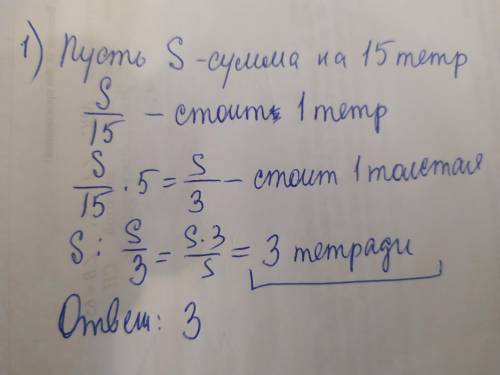 1) Пусть S - сумма на 15 тетр
S/15 - стоит 1 тетр
S/15 · 5 = S/3 - стоит 1 толстая
S : S/3 = S·3/S = 3 тетради
Ответ: 3